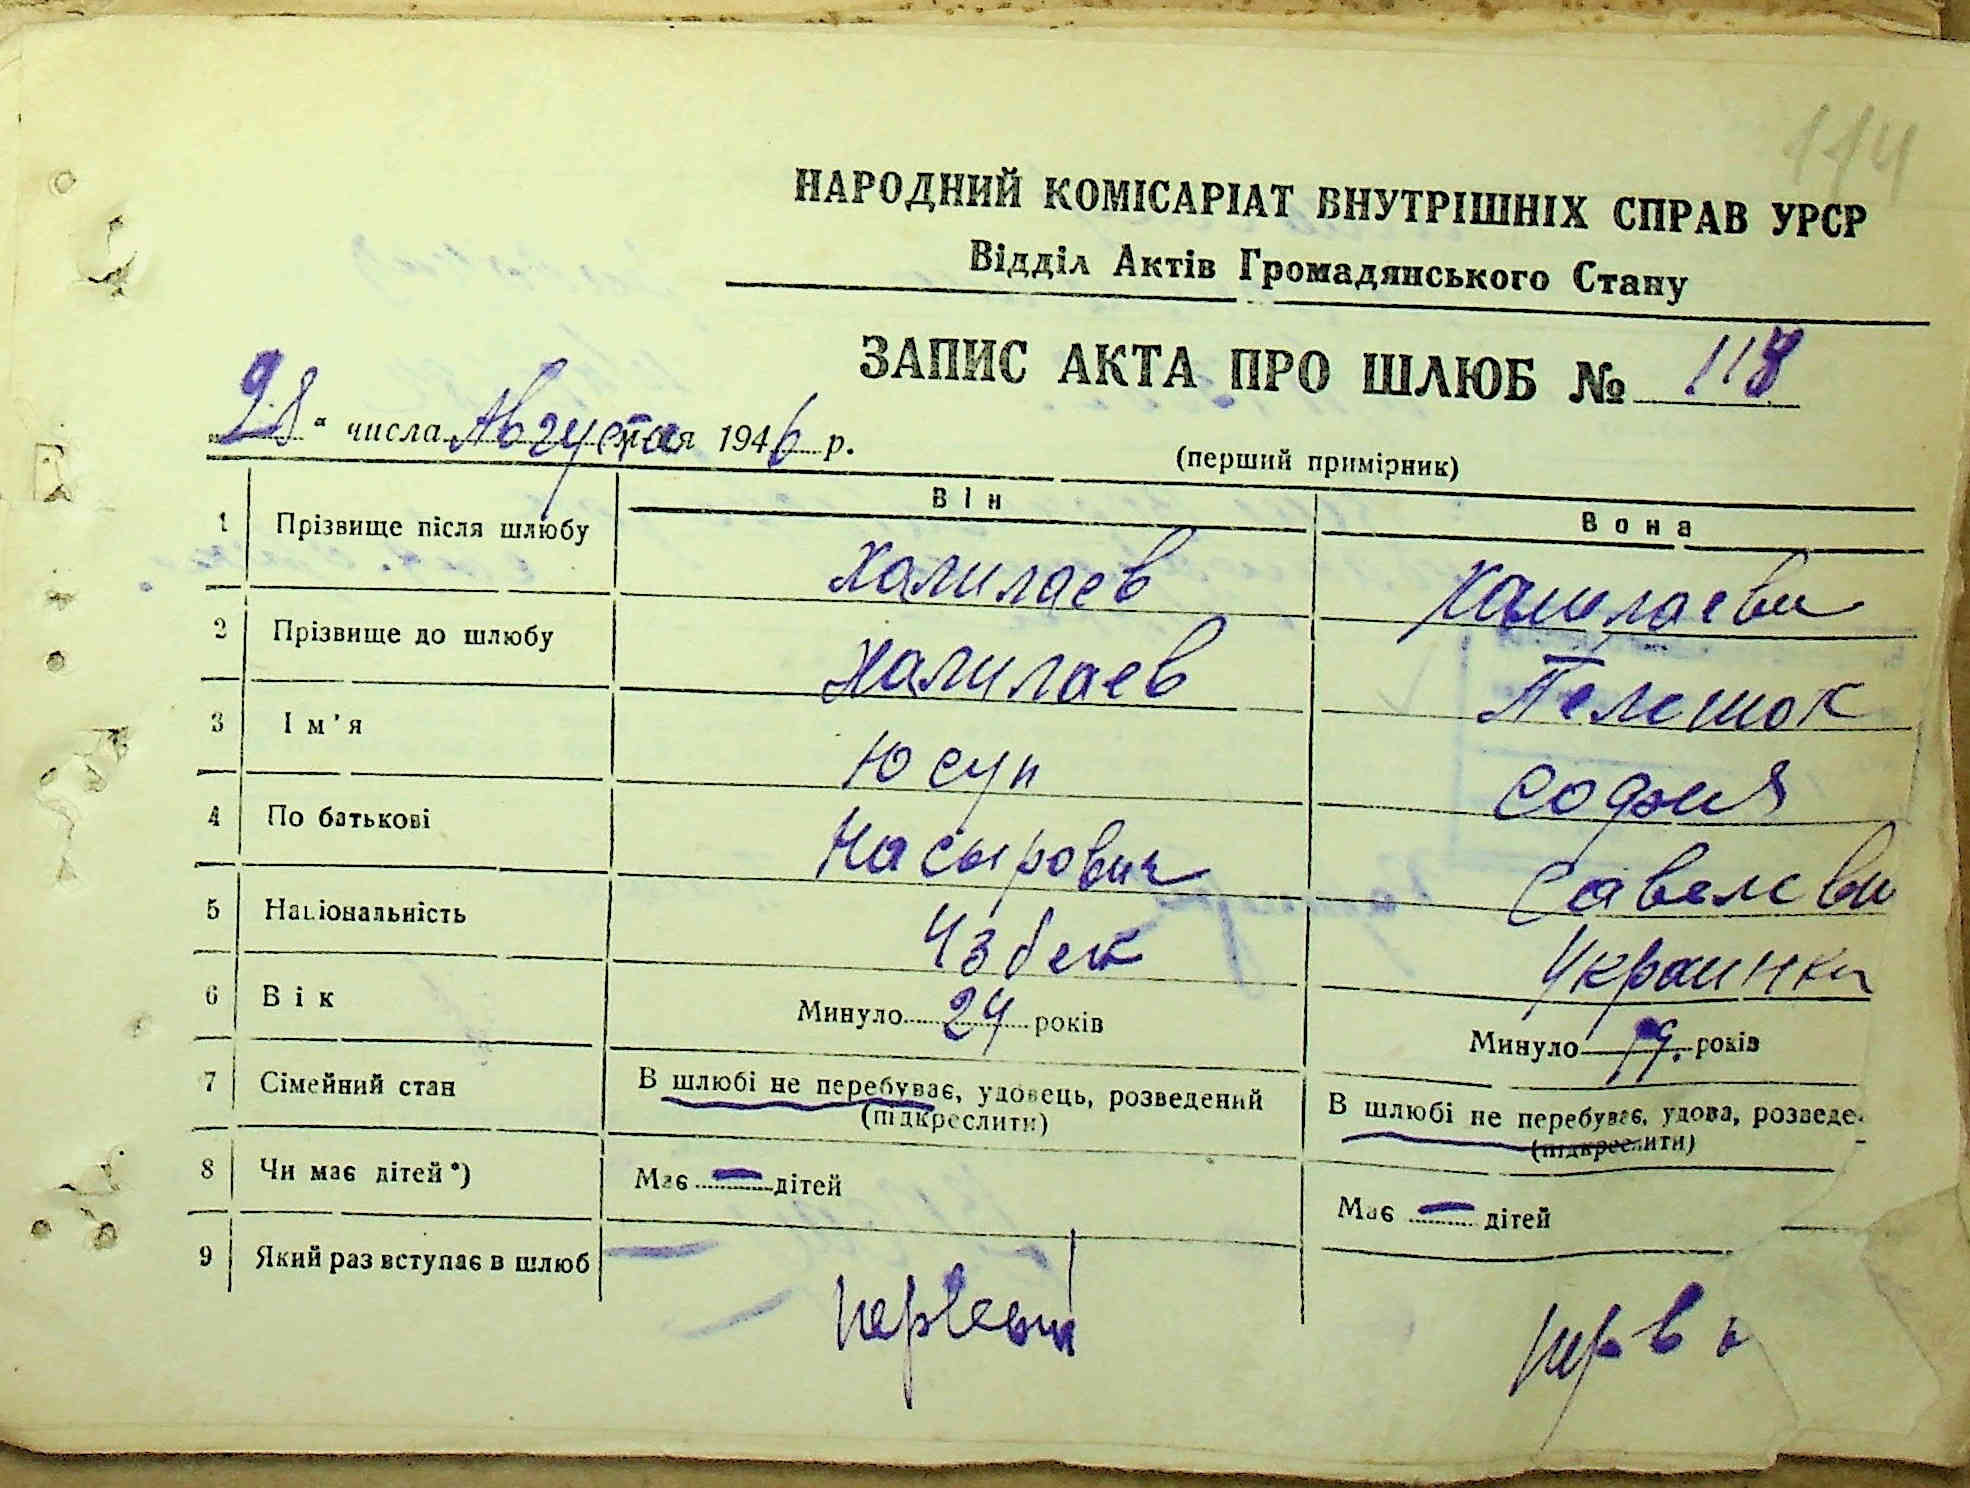 114
НАРОДНИЙ КОМІСАРІАТ ВНУТРІШНІХ СПРАВ УРСР
Відділ Актів Громадянського Стану
ЗАПИС АКТА ПРО ШЛЮБ № 118
28 " числа Августа м-ця 1946 р.
(перший примірник)
Він Вона
1 Прізвище після шлюбу Халилаев Халилаева
2 Прізвище до шлюбу Халилаев
3 Ім'я Юсуп София
4 По батькові Насырович
5 Національність Узбек Украинка
6 Вік Минуло 24 років Минуло 19. років
7 Сімейний стан В шлюбі не перебуває, удовець, розведений В шлюбі не перебуває, удова, розведе
(підкреслити) (підкреслити)
8 Чи має дітей*) Має — дітей Має — дітей
9 Який раз вступає в шлюб
первый перв